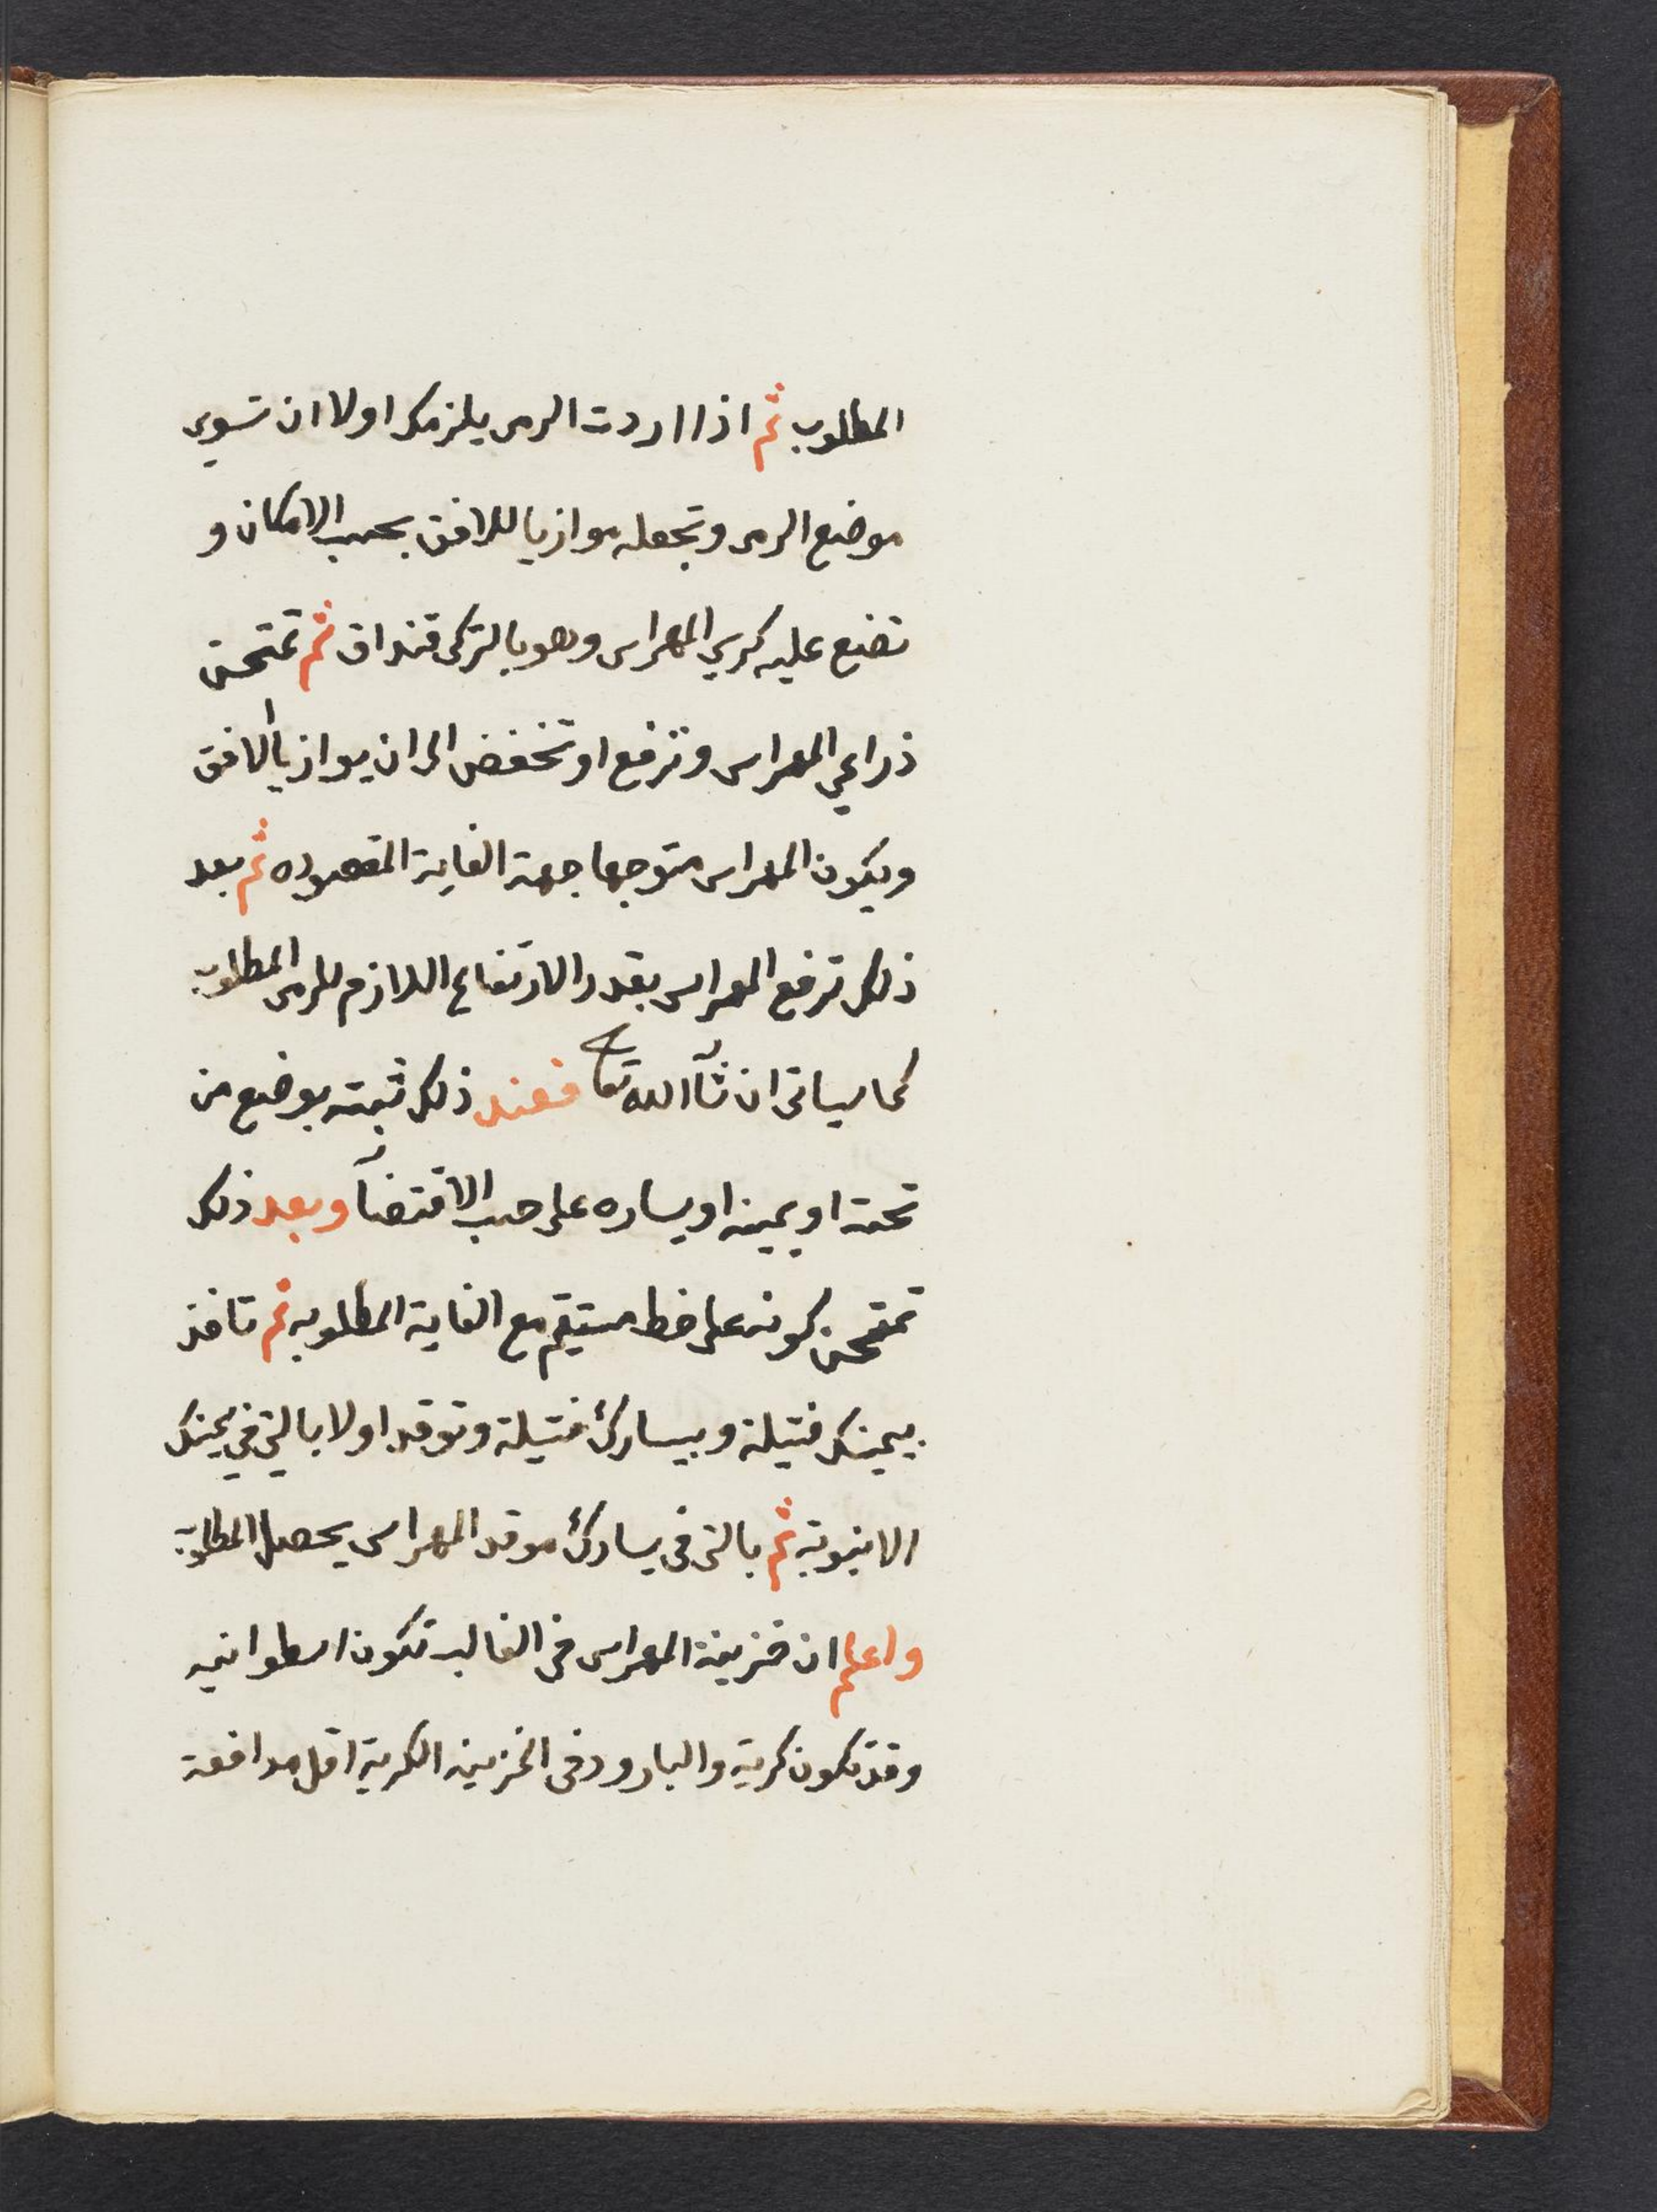 المطلوب ثم اذا اردت الرمى يلزمك اولا ان تسوى
موضع الرمى وتجعله موازيا للافق بحسب الامكان و
تضع عليه كرسي المهراس وهو بالتركى قنداق ثم تمتحن
ذراعي المهراس وترفع او تخفض الى ان يوازيا الافق
ويكون المهراس متوجها جهة الغاية المقصوده ثم بعد
ذلك ترفع المهراس بقدر الارتفاع اللازم للرمى المطلوب
كما سياتى ان شآء الله تعا فعند ذلك ثبته بوضع من
تحته او يمينه او يساره على حسب الاقتضآء وبعد ذلك
تمتحن كونه على خط مستقيم مع الغاية المطلوبه ثم تاخذ
بيمينك فتيلة وبيسارك فتيلة وتوقد اولا بالتي في يمينك
الانبوبة ثم بالتى فى يسارك موقد المهراس يحصل المطلوب
واعلم ان خزينة المهراس فى الغالب تكون اسطوانيه
وقد تكون كرية والبارود فى الخزينه الكرية اقل مدافعة